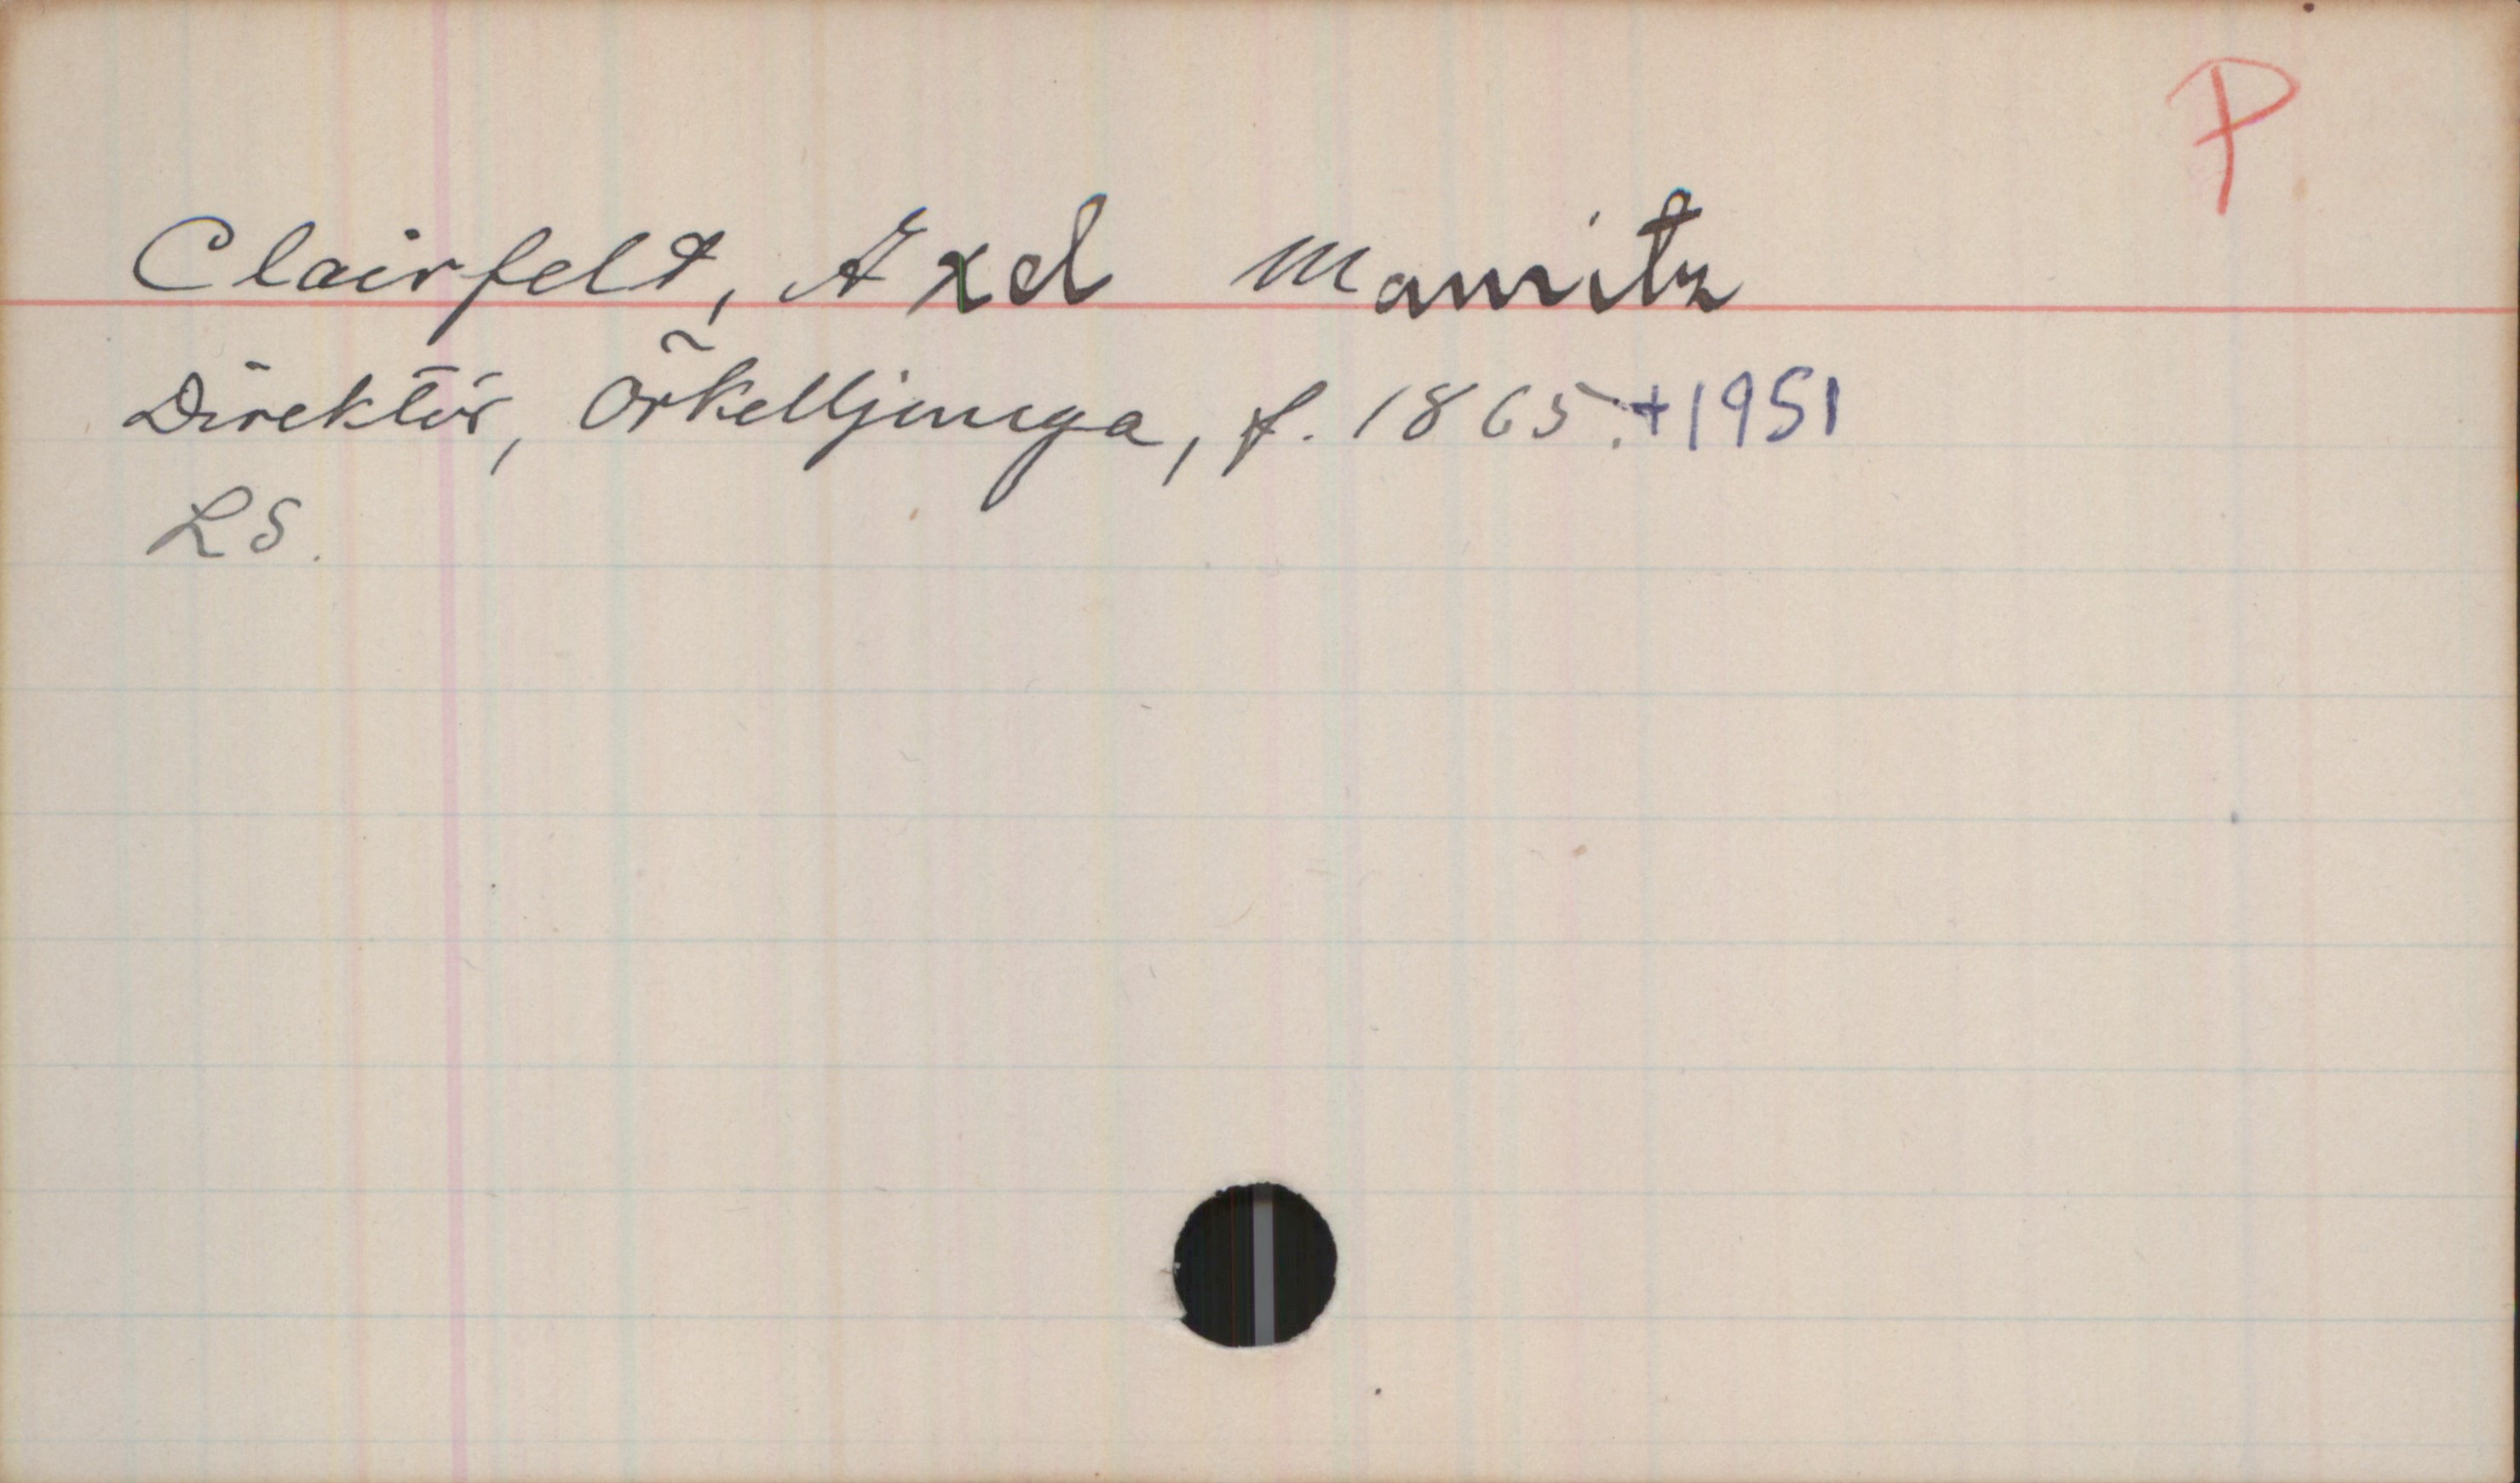 P
Clairfelt, Axel Mauritz
Direktör, Örkelljunga, f. 1865. +1951
LS.